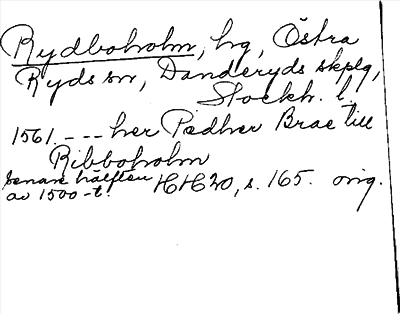 Rydboholm, hg, Östra
Ryds sn, Danderyds skplg,
Stockh. l.
1561. --- her Pedher Brae till
Ribboholm
senare hälften
av 1500-t. HH20, s. 165. orig.